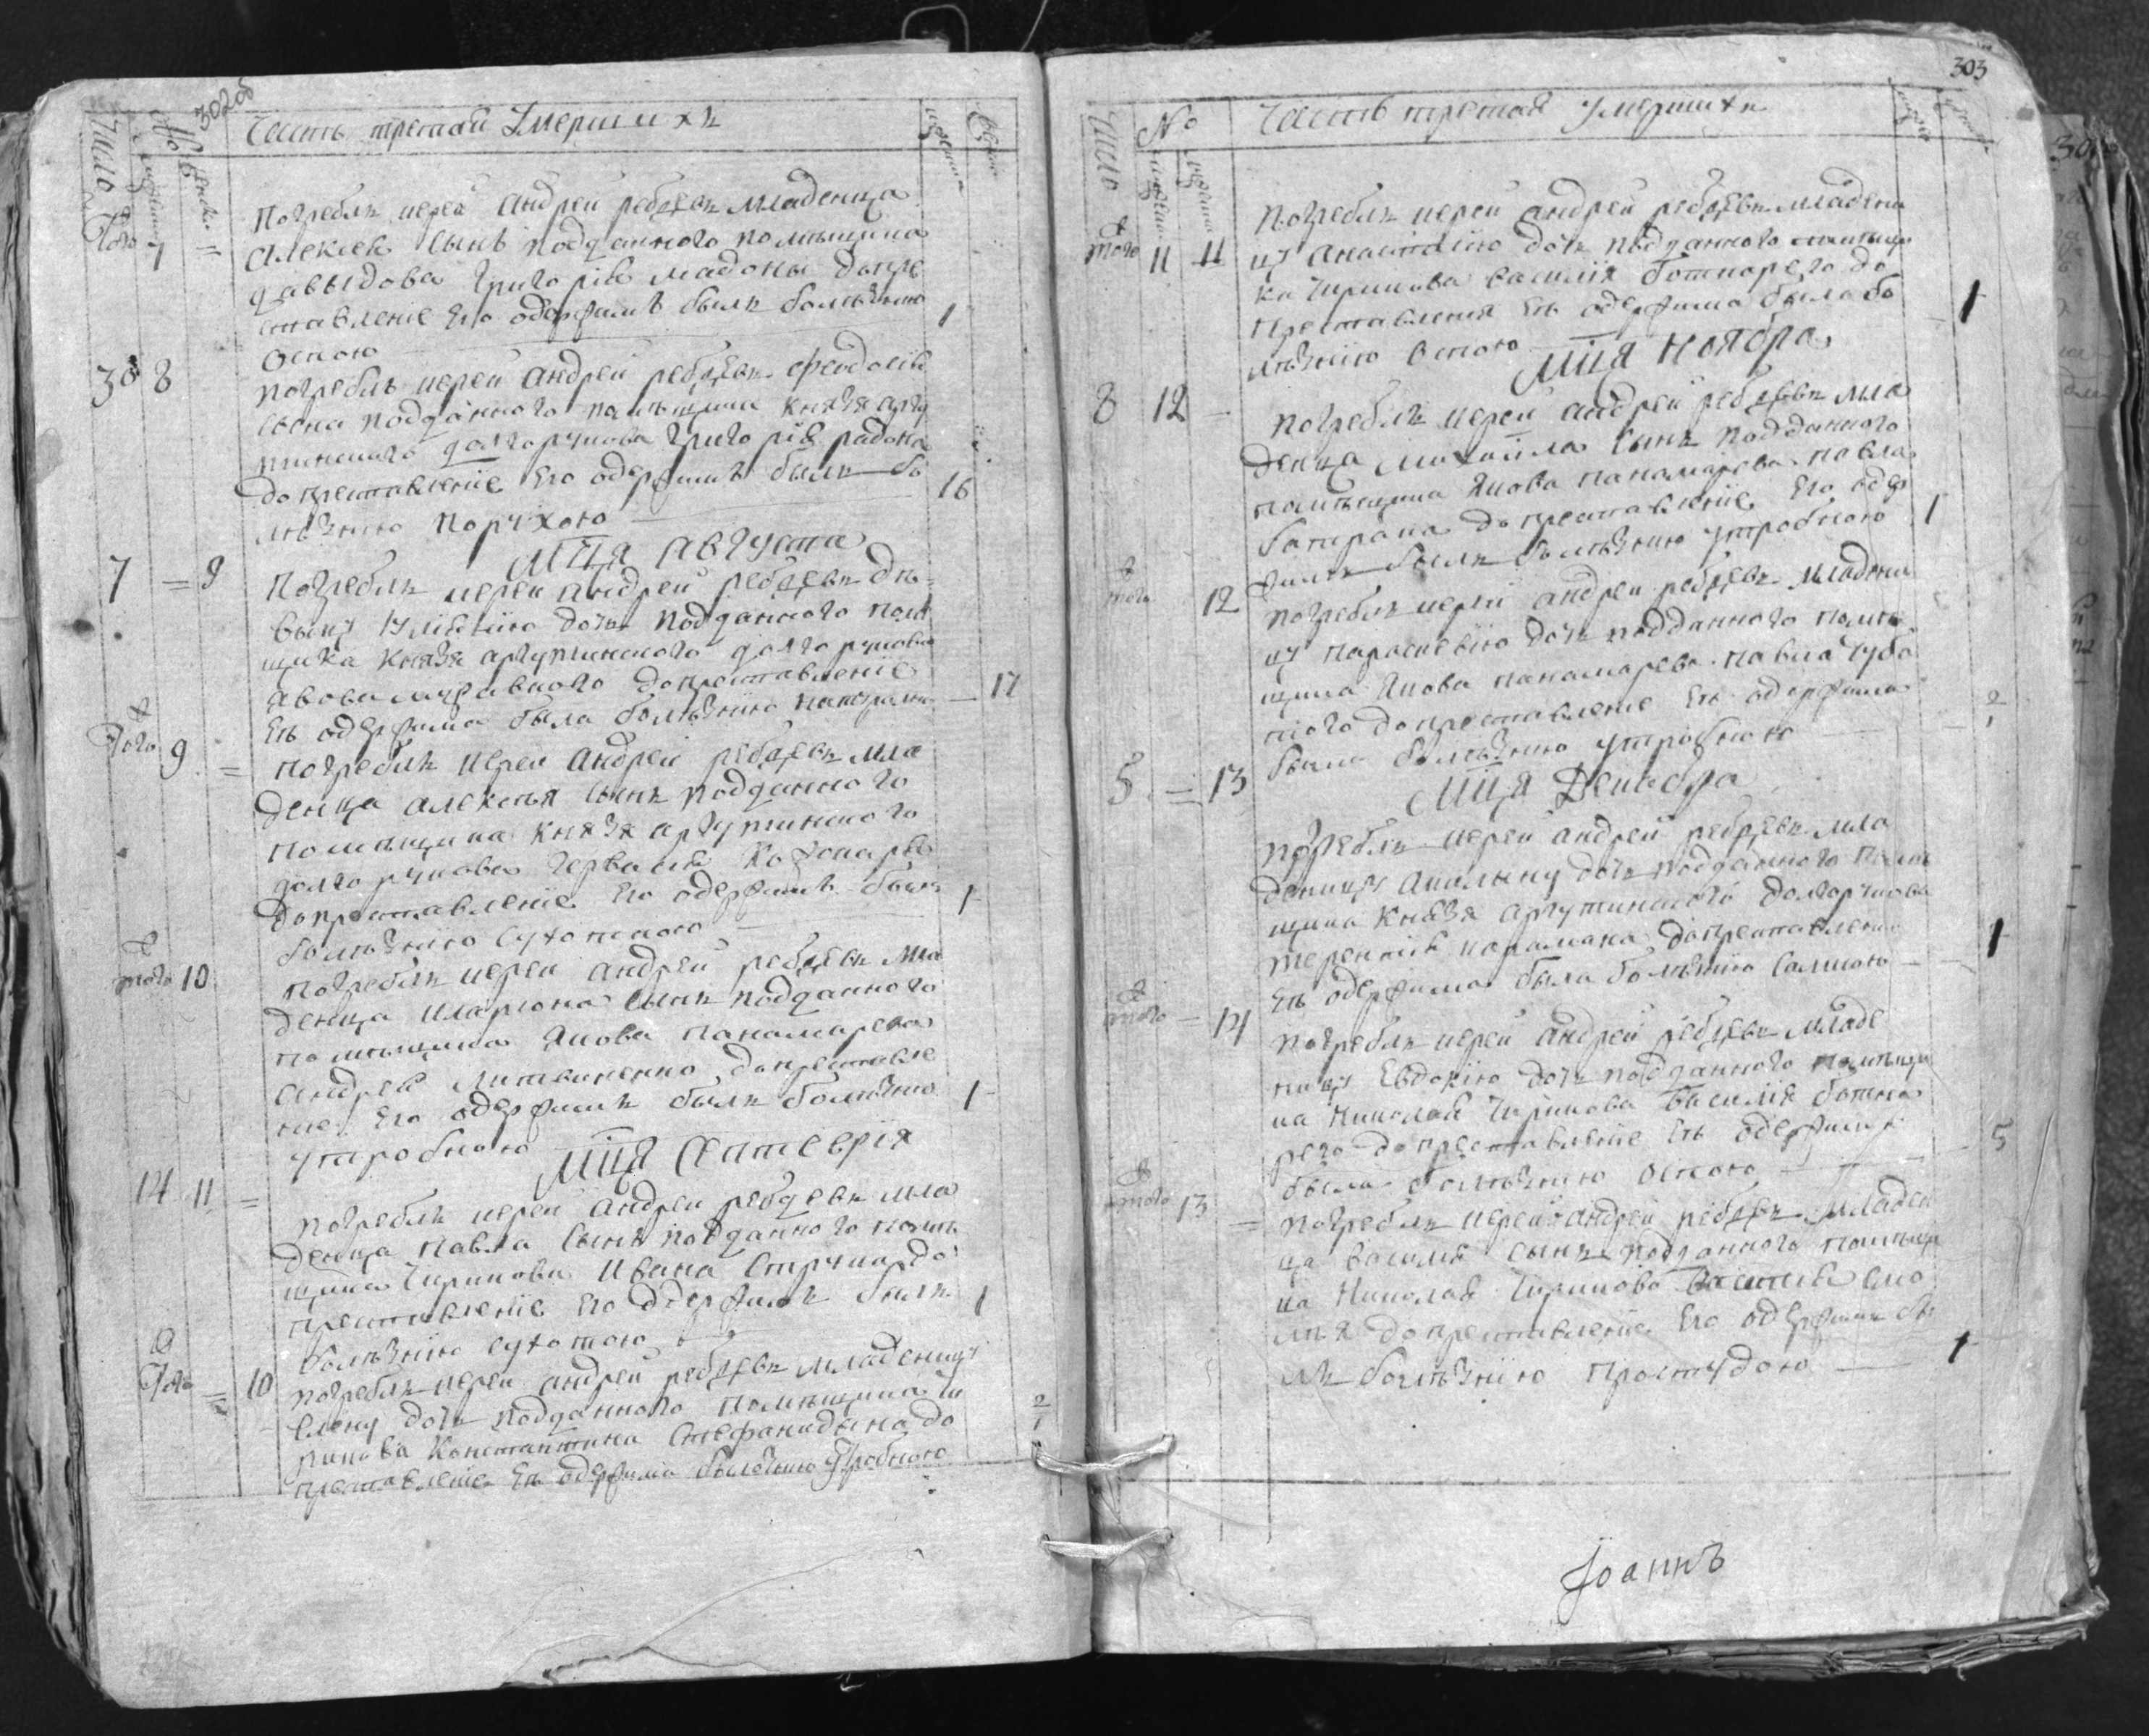 302об
Число
№
мужеска
женска
Часть третая Умершихъ
мужеска
женска
Того 7 =
Погреблъ иерей Андрей ребдевъ младенца
Алексея сынъ подданного помѣщика
давыдова Григорія Мадоны допре
ставленіе Его одержимъ былъ болѣзнію
Оспою 1
30 8
погреблъ иерей Андрей ребдевъ Феодосія
сына подданного помѣщика князя аргу
тинского долгорукова Григорія радона
допреставленіе Его одержимъ былъ бо
лѣзнію порухою 16
Мця Августа
7 = 9
Погреблъ иерей андрей ребдевъ дѣ
вицу дочь подданного помѣ
щика князя аргутинского долгорукова
Якова допреставленіе
Еѣ одержима была болѣзнію 17
Того 9 =
погреблъ иерей Андрей ребдевъ мла
денца алексѣя сынъ подданного
помѣщика князя аргутинского
долгорукова Гервасія
допреставленіе Его одержимъ былъ
болѣзнію сухоткою 1
Того 10
погреблъ иерей андрей ребдевъ мла
денца илариона сынъ подданного
помѣщика Якова панамарева
Андрея Литвиненко допреставле
ніе Его одержимъ былъ болѣзнію
утробною 1
Мця Септеврія
14 11 =
погреблъ иерей андрей ребдевъ мла
денца павла сынъ подданного помѣ
щика Чирикова Ивана Стрчка до
преставленіе Его одержимъ былъ
болѣзнію сухотою 1
Того 10
погреблъ иерей андрей ребдевъ младеницу
Елену дочь подданного помѣщика Чи
рикова Константина до
преставленіе Еѣ одержима болѣзнію утробною 2
303
Число
№
Часть третая Умершихъ
того 11 11
погреблъ иерей андрей ребдевъ младени
цу Анастасію дочь подданного помѣщи
ка Чирикова василія ботнарего до
преставленія Еѣ одержима была бо
лѣзнію Оспою 1
Мця Ноября
8 12
погреблъ иерей андрей ребдевъ мла
денца михаила сынъ подданного
помѣщика Якова панамарева павла
допреставленіе Его одер
жимъ былъ болѣзнію утробною 1
того 12
погреблъ иерей андрей ребдевъ младени
цу параскевію дочь подданного помѣ
щика Якова панамарева павла
допреставленіе Еѣ одержима
была болѣзнію утробною 2
Мця Декабра
5 = 13
погреблъ иерей андрей ребдевъ мла
деницу Акилину дочь подданного помѣ
щика князя аргутинского долгорукова
терентія карамана допреставленіе
Еѣ одержима была болѣзнію 1
того 14
погреблъ иерей андрей ребдевъ младе
ницу Евдокію дочь подданного помѣщи
ка Николая Чирикова василія ботна
рего допреставленіе Еѣ одержима
была болѣзнію оспою 5
того 13 =
погреблъ иерей андрей ребдевъ младен
ца василія сынъ подданного помѣщи
ка Николая Чирикова
допреставленіе Его одержимъ бы
лъ болѣзнію простудою 1
Іоаннъ